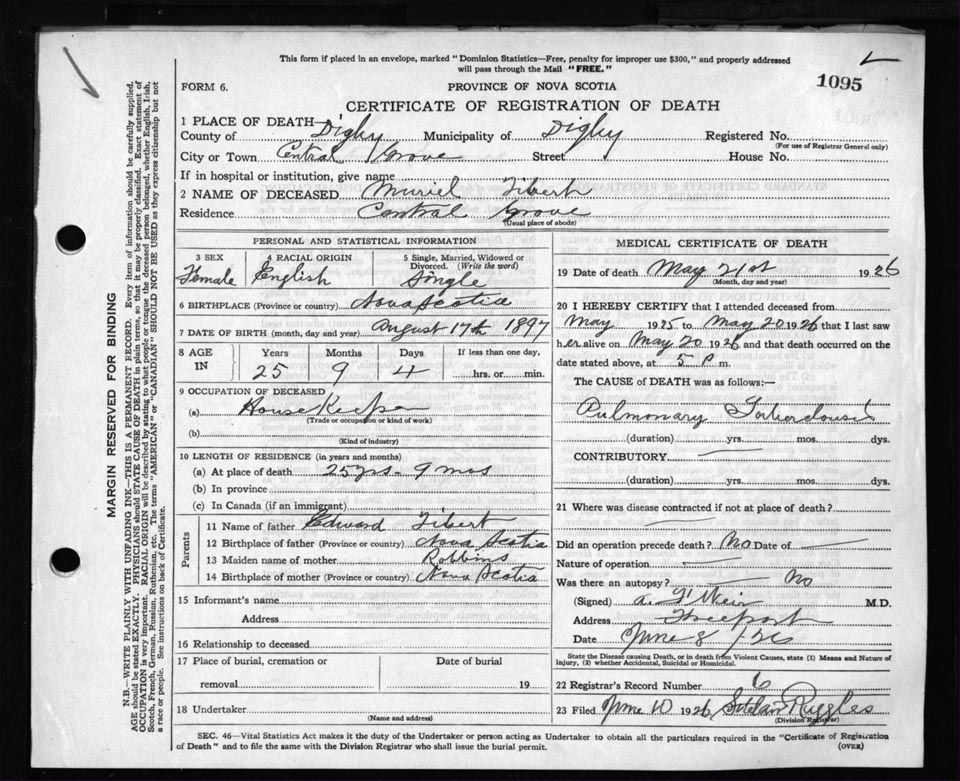 This form if placed in an envelope, marked "Dominion Statistics—Free, penalty for improper use $300," and properly addressed
will pass through the Mail "FREE."
1095
FORM 6.
PROVINCE OF NOVA SCOTIA
CERTIFICATE OF REGISTRATION OF DEATH
1 PLACE OF DEATH—
County of Digby Municipality of Digby Registered No.
(For use of Registrar General only)
City or Town Central Grove Street House No.
If in hospital or institution, give name
2 NAME OF DECEASED Muriel Tibert
Residence Central Grove
(Usual place of abode)
PERSONAL AND STATISTICAL INFORMATION
3 SEX 4 RACIAL ORIGIN 5 Single, Married, Widowed or Divorced. (Write the word)
Female English Single
6 BIRTHPLACE (Province or country) Nova Scotia
7 DATE OF BIRTH (month, day and year) August 17th 1897
8 AGE IN Years Months Days If less than one day,
25 9 4 hrs. or min.
9 OCCUPATION OF DECEASED
(a) House Keeper
(Trade or occupation or kind of work)
(b)
(Kind of industry)
10 LENGTH OF RESIDENCE (in years and months)
(a) At place of death 25 yrs - 9 mos
(b) In province
(c) In Canada (if an immigrant)
Parents
11 Name of father Edward Tibert
12 Birthplace of father (Province or country) Nova Scotia
13 Maiden name of mother Robbins
14 Birthplace of mother (Province or country) Nova Scotia
15 Informant's name
Address
16 Relationship to deceased
17 Place of burial, cremation or Date of burial
removal 19
18 Undertaker
(Name and address)
MEDICAL CERTIFICATE OF DEATH
19 Date of death May 21st 1926
(Month, day and year)
20 I HEREBY CERTIFY that I attended deceased from
May 1925 to May 20 1926 that I last saw
her alive on May 20 1926 and that death occurred on the
date stated above, at 5 P m.
The CAUSE of DEATH was as follows:—
Pulmonary Tuberculosis
(duration) yrs. mos. dys.
CONTRIBUTORY
(duration) yrs. mos. dys.
21 Where was disease contracted if not at place of death?
Did an operation precede death? No Date of
Nature of operation
Was there an autopsy? No
(Signed) A. F. Weir M.D.
Address Freeport
Date June 8 / 26
State the Disease causing Death, or in death from Violent Causes, state (1) Means and Nature of
Injury, (2) whether Accidental, Suicidal or Homicidal.
22 Registrar's Record Number 6
23 Filed June 10 1926 Ruggles
(Division Registrar)
SEC. 46—Vital Statistics Act makes it the duty of the Undertaker or person acting as Undertaker to obtain all the particulars required in the "Certificate of Registration
of Death" and to file the same with the Division Registrar who shall issue the burial permit. (OVER)
MARGIN RESERVED FOR BINDING
N.B.—WRITE PLAINLY WITH UNFADING INK—THIS IS A PERMANENT RECORD. Every item of information should be carefully supplied.
AGE should be stated EXACTLY. PHYSICIANS should STATE CAUSE OF DEATH in plain terms, so that it may be properly classified. Exact statement of
OCCUPATION is very important. RACIAL ORIGIN will be described by stating to what people or tongue the deceased person belonged, whether English, Irish,
Scotch, French, German, Russian, Ruthenian, etc. The terms "AMERICAN" or "CANADIAN" SHOULD NOT BE USED as they express citizenship but not
a race or people. See instructions on back of Certificate.